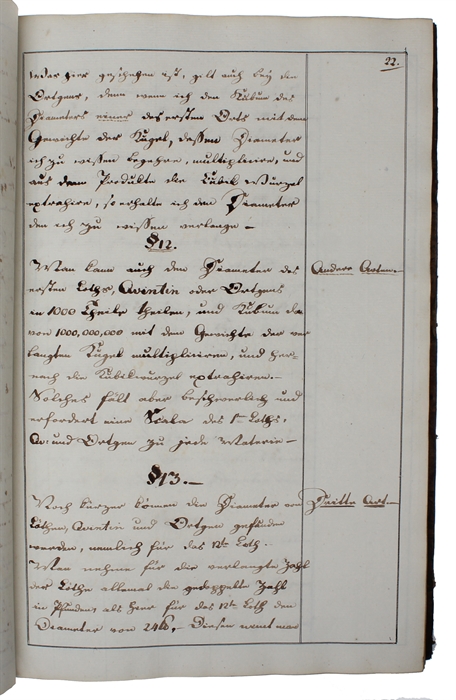 22.
was hier geschehen ist, gilt auch bey den
Ortgens, denn wenn ich den Kubum des
Diameters eines des ersten Orts mit dem
Gewichte der Kugel, dessen Diameter
ich zu wissen begehre, multiplicire, und
aus dem Produkte die Cubik Wurzel
extrahire, so erhalte ich den Diameter
den ich zu wissen verlange —
§12.
Man kann auch den Diameter des
Andere Arten —
ersten Loths, Quintin oder Ortgens
in 1000 Theile theilen, und Kubum da
von 1000,000,000 mit dem Gewichte der ver
langten Kugel multipliciren, und her-
nach die Kubikwurzel extrahiren. —
Solches fält aber beschwerlich und
erfordert eine Scala des 1ten Loths,
Qu: und Ortgen zu jede Materie —
§13. —
Noch kürzer können die Diameter von
Dritte Art —
Lothen, Quintin und Ortgen gefunden
werden, nemlich für das 12te Loth.
Man nehme für die verlangte Zahl
der Löthe allemal die gedoppelte Zahl
in Pfunden, als hier für das 12te Loth den
Diameter von 24 lb, Diesen nimt man